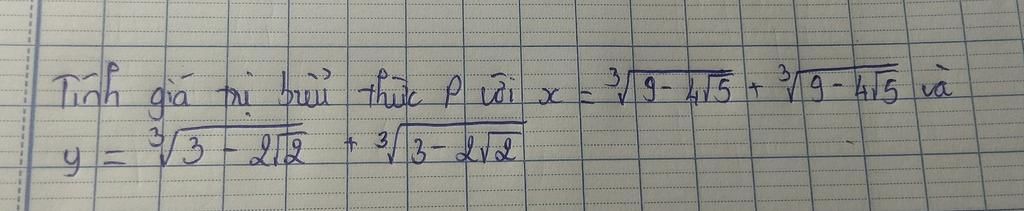 Tính giá trị biểu thức P với x = ∛(9 - 4√5) + ∛(9 - 4√5) và
y = ∛(3 - 2√2) + ∛(3 - 2√2)